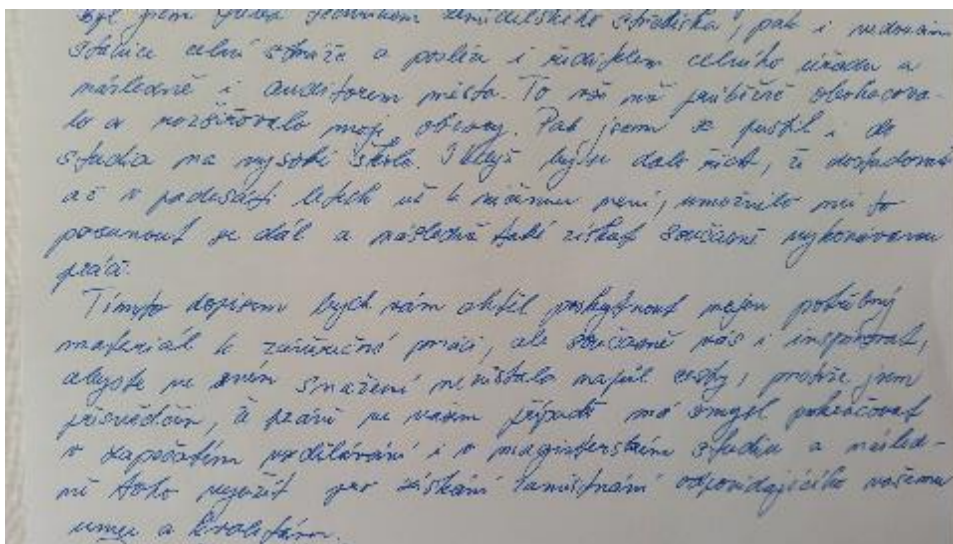 Byl jsem technikem zemědělského střediska, pak i vedoucím
stanice celní stráže a posléze i ředitelem celního úřadu a
následně i auditorem města. To vše mě průběžně obohacova-
lo a rozšiřovalo moje obzory. Pak jsem se pustil i do
studia na vysoké škole. I když byste dalo říct, že dostudovat
až v padesáti letech už k ničemu není, umožnilo mi to
posunout se dál a následně také získat současně vykonávanou
práci.
Tímto dopisem bych vám chtěl poskytnout nejen potřebný
materiál k závěrečné práci, ale současně vás i inspirovat,
abyste ve svém snažení neustala napůl cesty, protože jsem
přesvědčen, že právě ve vašem případě má smysl pokračovat
v započatém vzdělávání i v magisterském studiu a násled-
ně toto využít pro získání zaměstnání odpovídajícího vašemu
umu a kvalitám.